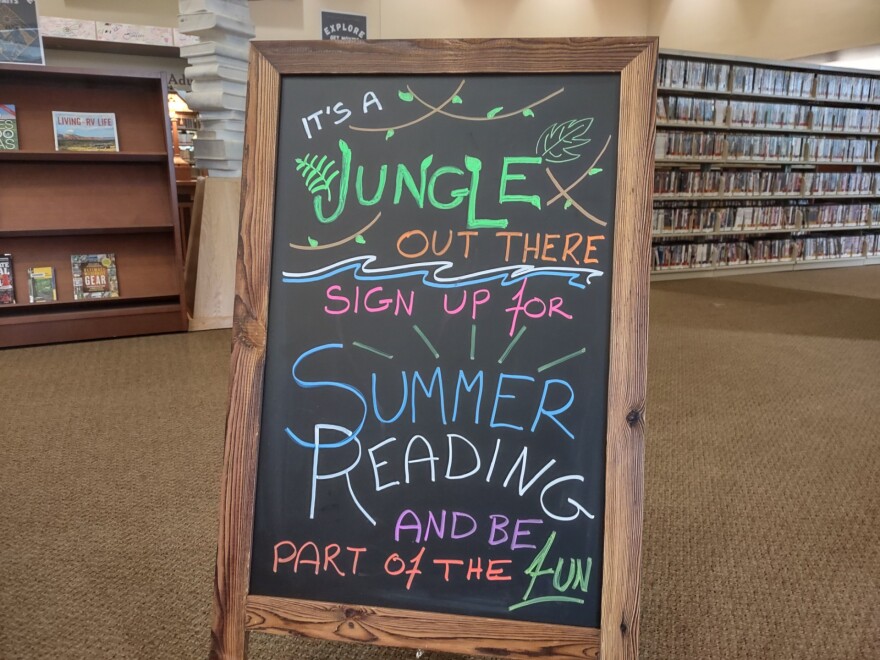 EXPLORE
LIVING THE RV LIFE
ULTIMATE
GEAR
IT'S A
JUNGLE
OUT THERE
SIGN UP FOR
SUMMER
READING
AND BE
PART OF THE FUN